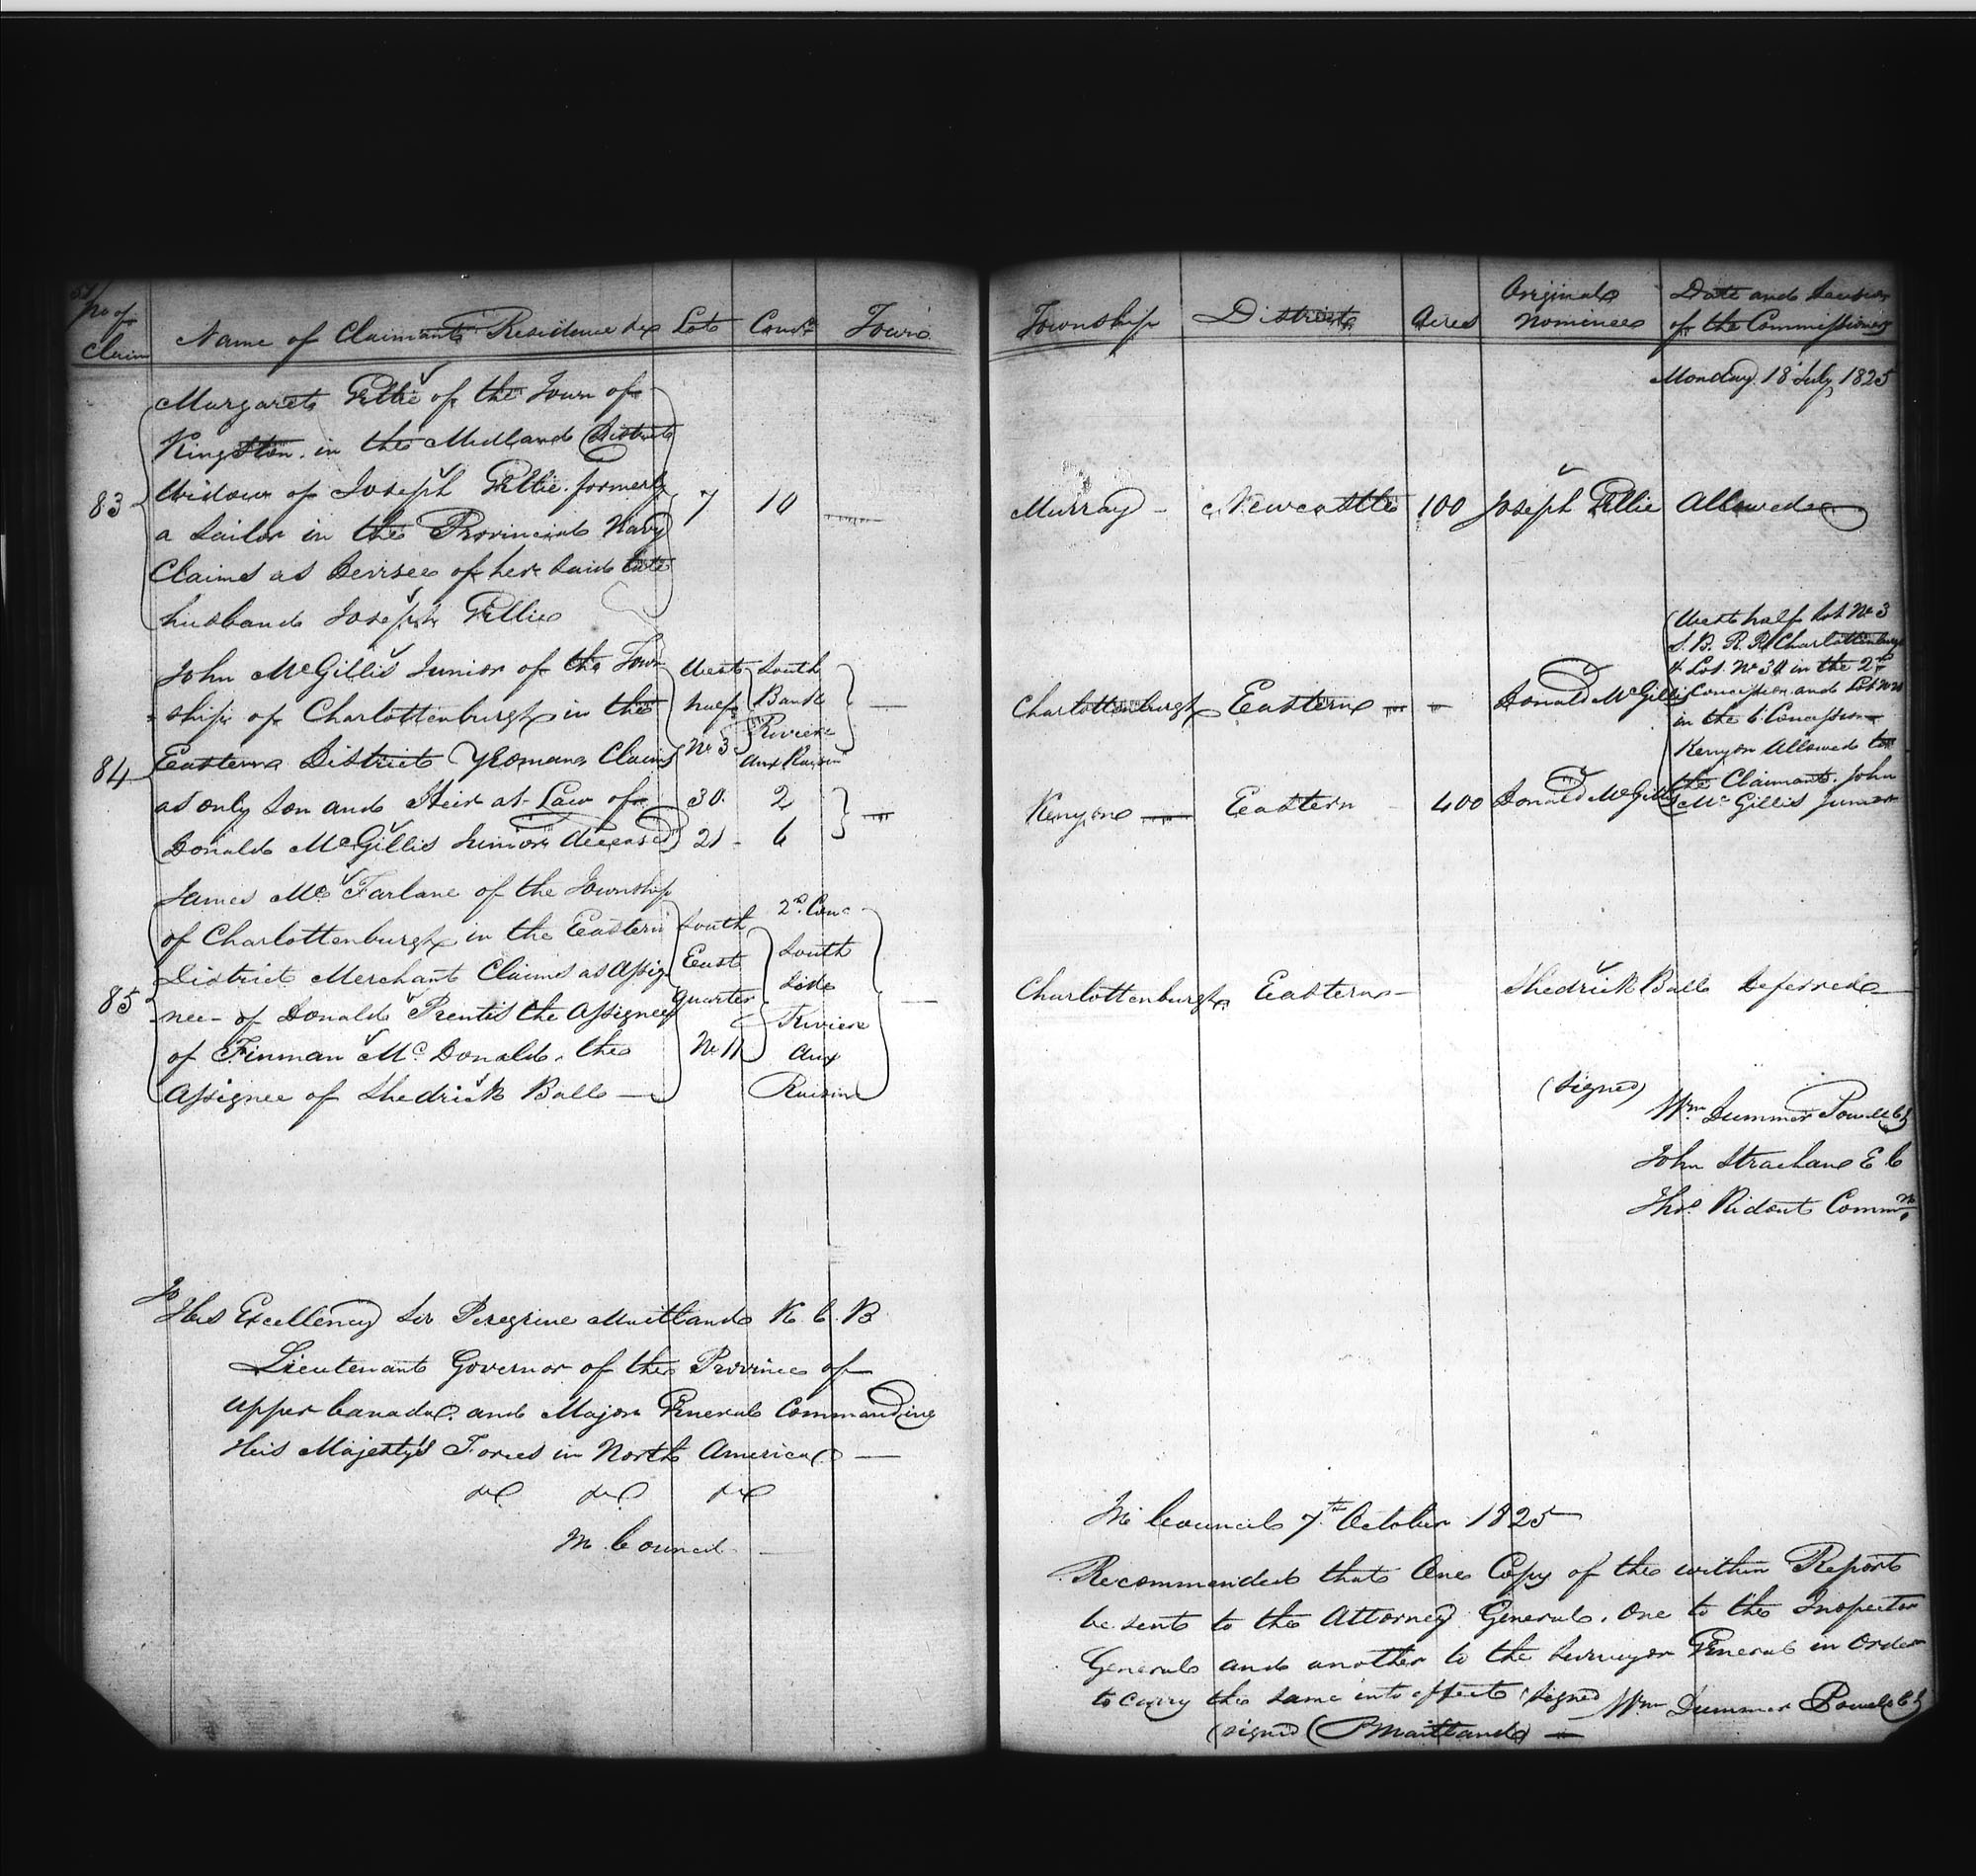 No of Claim
Name of Claimants Residence &c
Lot
Conn
Town
Margaret Gillie of the Town of
Kingston in the Midland District
Widow of Joseph Gillie formerly
83
a Sailor in the Provincial Navy
Claims as Devisee of her said late
husband Joseph Gillie
7
10
John McGillis Junior of the Town
ship of Charlottenburgh in the
84
Eastern District Yeoman Claims
as only Son and Heir at Law of
Donald McGillis Junior deceased
West
half
No 3
South
Bank
Riviere
Aux Raisin
30
2
21
6
James Mc Farlane of the Township
of Charlottenburgh in the Eastern
District Merchant Claims as Assig
85
nee of Donald Prentis the Assignee
of Finman Mc Donald the
Assignee of Shedrick Ball
South
East
quarter
No 11
2d Conc
South
Side
Riviere
Aux
Raisin
To
His Excellency Sir Peregrine Maitland K. C. B
Lieutenant Governor of the Province of
Upper Canada and Major General Commanding
His Majesty's Forces in North America
&c &c &c
In Council
Township
District
Acres
Original
Nominee
Date and Decision
of the Commissioners
Monday 18 July 1825
Murray
Newcastle
100
Joseph Gillie
Allowed
Charlottenburgh
Eastern
Donald McGillis
Kenyon
Eastern
400
Donald McGillis
West half Lot No 3
S. B. R. R. Charlottenburgh
& Lot No 30 in the 2d
Concession and Lot No 21
in the 6 Concession
Kenyon Allowed to
the Claimant John
Mc Gillis Junior
Charlottenburgh
Eastern
Shedrick Ball
Deferred
(signed)
Wm Dummer Powell CJ
John Strachan E C
Thos Ridout Commr
In Council 7th October 1825
Recommended that One Copy of the within Report
be sent to the Attorney General, One to the Inspector
General and another to the Surveyor General in Order
to carry the same into effect (signed Wm Dummer Powell CJ
(signed (P Maitland)